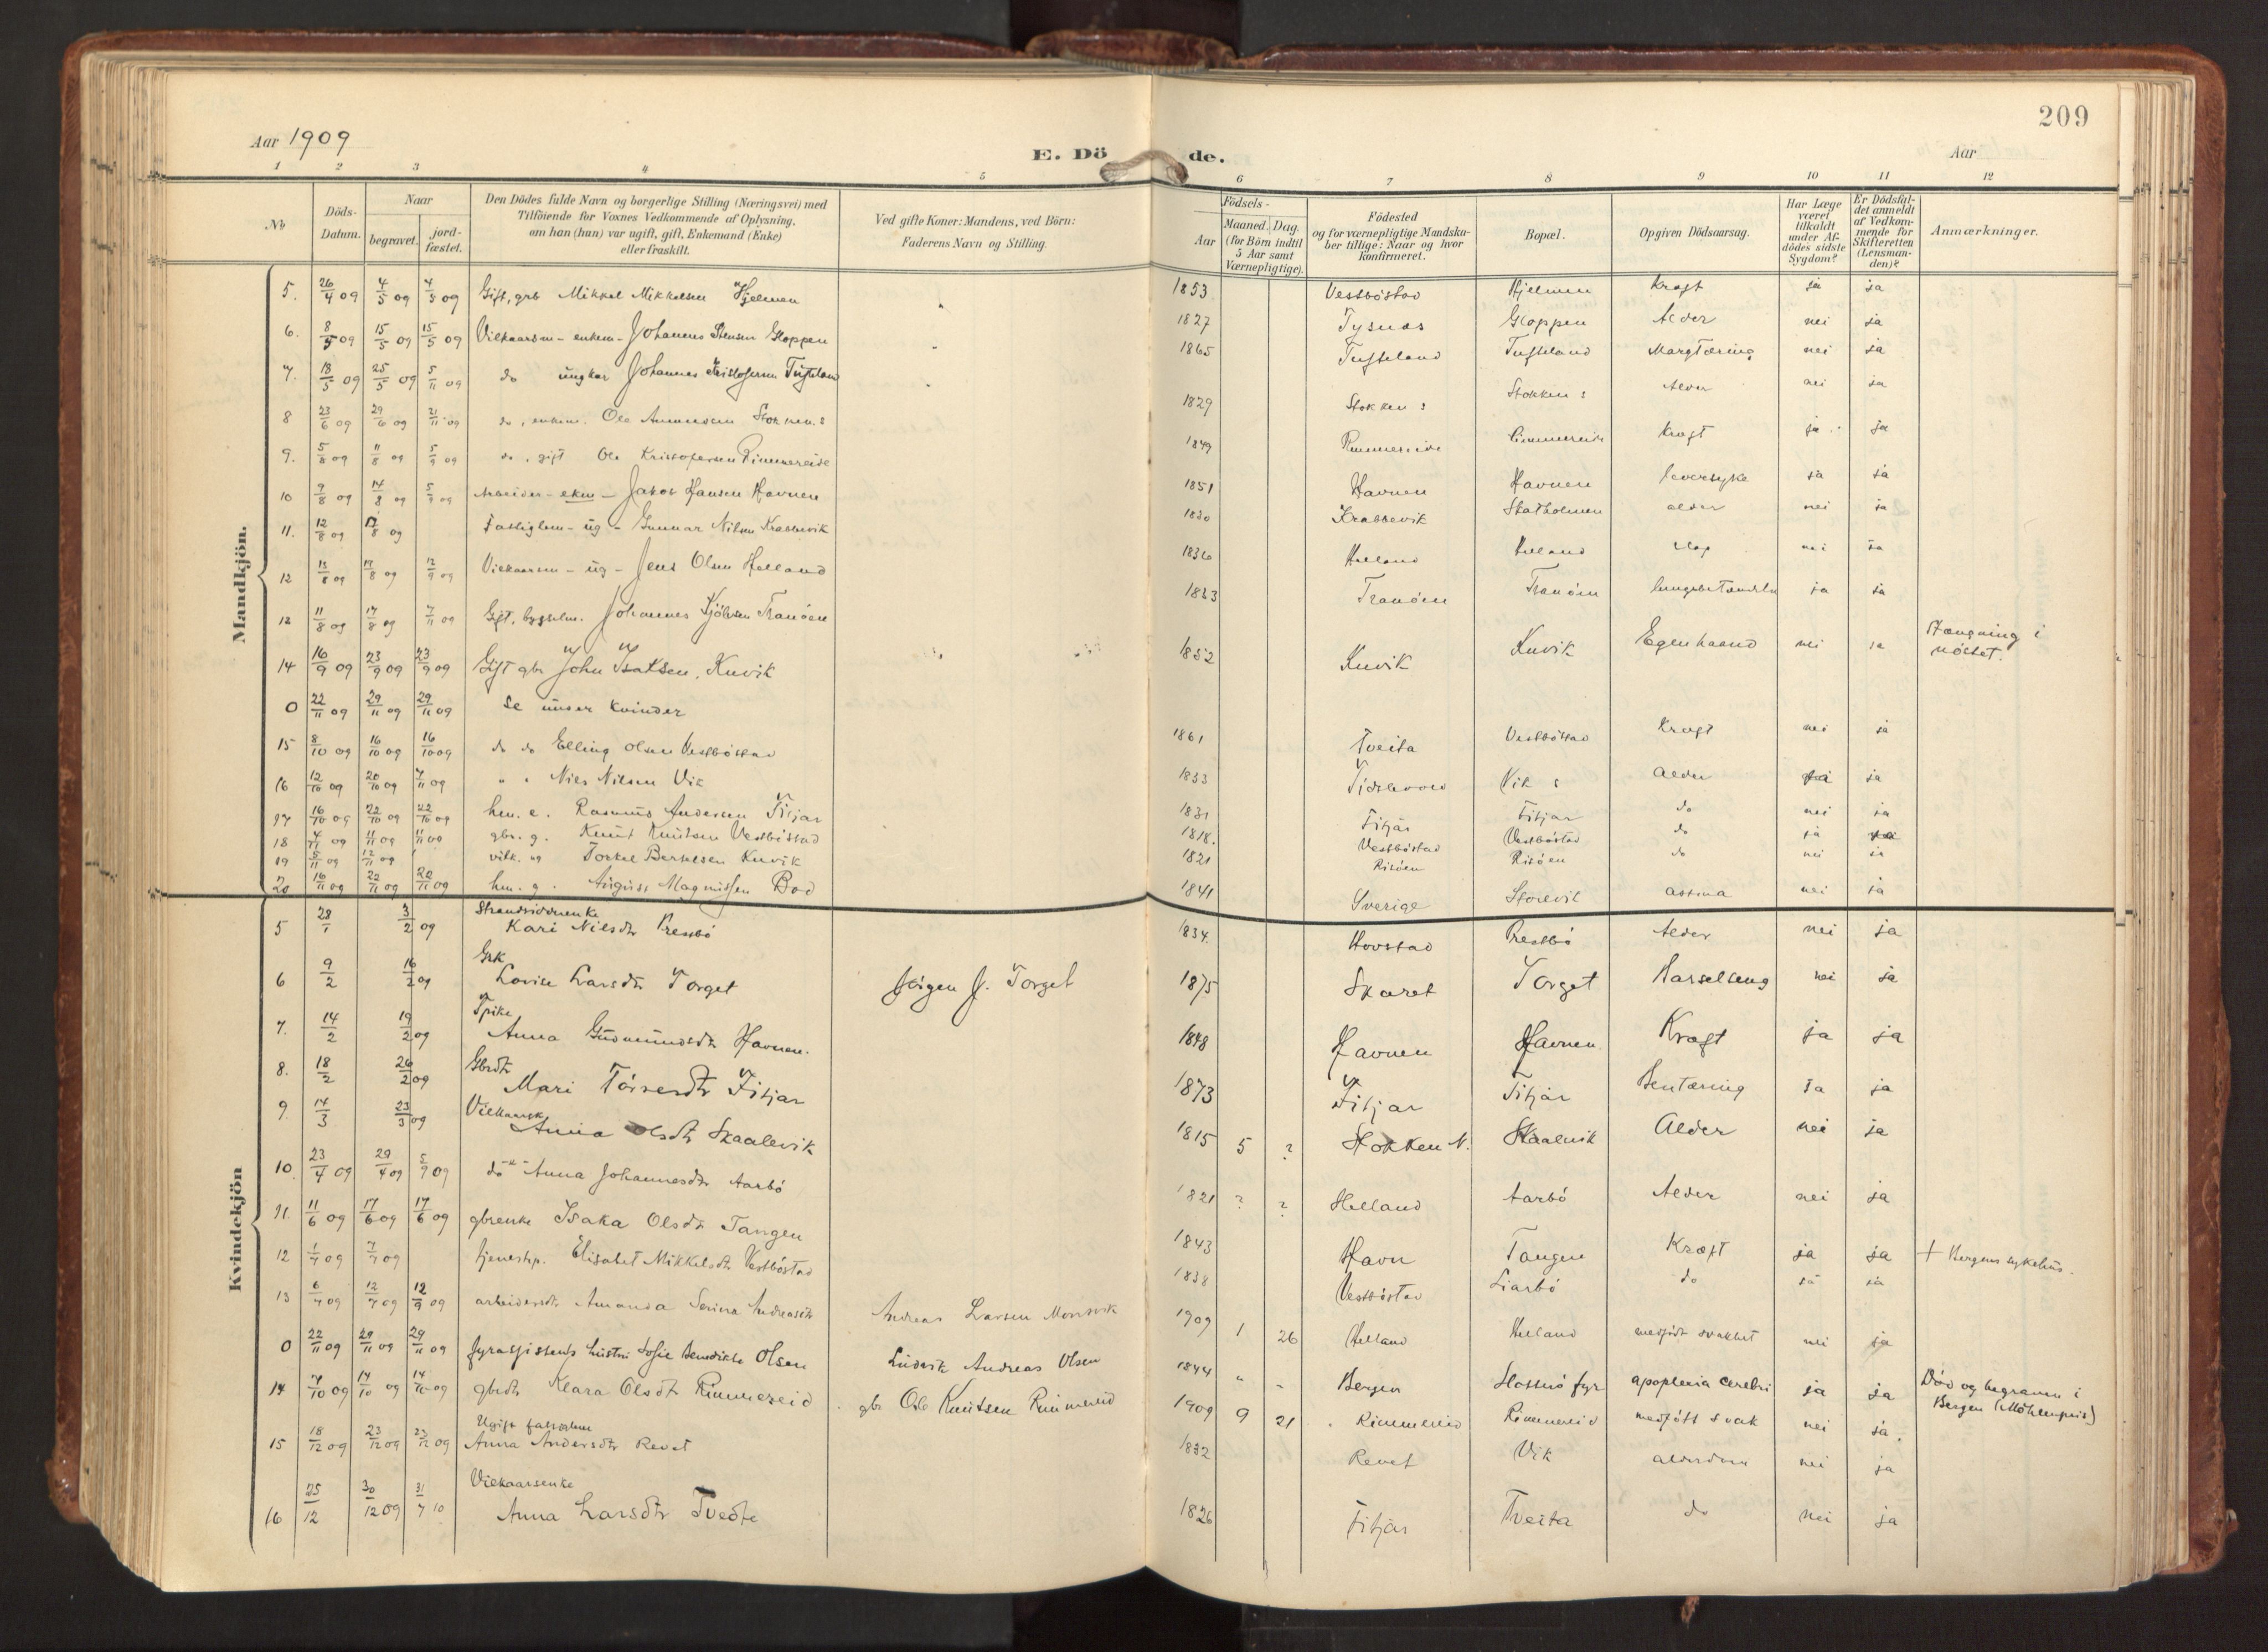 209
Aar 1909
E. Döde.
Aar
1 2 3 4 5 6 7 8 9 10 11 12
No
Döds-Datum.
Naar
begravet.
jord-fæstet.
Den Dödes fulde Navn og borgerlige Stilling (Næringsvei) med
Tilföiende for Voxnes Vedkommende af Oplysning.
om han (hun) var ugift, gift, Enkemand (Enke)
eller fraskilt.
Ved gifte Koner: Mandens, ved Börn:
Faderens Navn og Stilling.
Födsels-
Aar
Maaned. Dag.
(for Börn indtil
5 Aar samt
Værnepligtige).
Födested
og for værnepligtige Mandska-
ber tillige: Naar og hvor
konfirmeret.
Bopæl.
Opgiven Dödsaarsag.
Har Læge
været
tilkaldt
under Af-
dödes sidste
Sygdom?
Er Dödsfal-
det anmeldt
af Vedkom-
mende for
Skifteretten
(Lensman-
den)?
Anmærkninger.
Mandkjön.
5. 26/4 09 4/5 09 4/5 09 Gift, grb Mikkel Mikkelsen Hjelmen 1853 Vestböstad Hjelmen Kræft ja ja
6. 8/5 09 15/5 09 15/5 09 Vilkaarsm - enkem - Johannes Gloppen 1827 Tysnæs Gloppen Alder nei ja
7. 18/5 09 25/5 09 5/11 09 do ungkar Johannes Kristofersen Tufteland 1865 Tufteland Tufteland Margtæring nei ja
8 23/6 09 29/6 09 21/11 09 do, enkem. Ole Stokken. s 1829 Stokken s Stokken s Alder nei ja
9. 5/8 09 11/8 09 5/9 09 do, gift Ole Kristofersen Rimmereide 1849 Rimmereide Rimmereide Kræft ja ja
10 9/8 09 14/8 09 5/9 09 Arbeider - ekm - Jakob Hansen Havnen 1851 Havnen Havnen leversyke ja ja
11. 12/8 09 17/8 09 Fattiglem - ug - Gunnar Nilsen Krabbevik 1830 Krabbevik Skatholmen alder nei ja
12 13/8 09 17/8 09 12/9 09 Vilkaarsm - ug - Jens Olsen Helland 1836 Helland Helland slag nei ja
13 11/8 09 17/8 09 7/11 09 Gift, bygselm. Johannes Tranöen 1833 Tranöen Tranöen ja ja
14 16/9 09 23/9 09 23/9 09 Gift gbr John Isaksen, Kuvik 1852 Kuvik Kuvik Egenhaand nei ja Hængning i
nöstet.
0 22/11 09 29/11 09 29/11 09 Se under kvinder
15 8/10 09 16/10 09 16/10 09 do do Elling Olsen Vestböstad 1861 Tveita Vestböstad Kræft nei ja
16 12/10 09 20/10 09 7/11 09 " " Nils Nilsen Vik 1833 Vik s Alder ja
17 16/10 09 22/10 09 22/10 09 hm. e. Rasmus Andersen Fitjar 1831 Fitjar Fitjar do nei ja
18 4/11 09 11/11 09 11/11 09 gbr. g. Knut Knutsen Vestböstad 1818. Vestböstad Vestböstad do ja
19 5/11 09 12/11 09 vilk. ug Torkel Bertelsen Kuvik 1821 Risöen Risöen do nei ja
20 16/11 09 22/11 09 22/11 09 hm. g. August Magnussen Bod 1841 Sverige Storevik astma nei ja
Kvindekjön
5 28/1 3/2 09 Strandsidderenke
Kari Nilsdtr Prestbö 1834. Hovstad Prestbö Alder nei ja
6 9/2 16/2 09 Gbk
Lovise Larsdtr Torget Jörgen J. Torget 1875 Skaret Torget Barselseng nei ja
7. 14/2 19/2 09 Spike
Anna Gudmundsdtr Havnen. 1848 Havnen Havnen Kræft ja ja
8. 18/2 26/2 09 Gbrdtr
Mari Törresdtr Fitjar 1873 Fitjar Fitjar Bentæring ja ja
9. 14/3 23/3 09 Vilkaarsk
Anna Olsdtr Skaalevik 1815 5 ? Stokken N. Skaalevik Alder nei ja
10. 23/4 09 29/4 09 5/9 09 do -e- Anna Johannesdtr Aarbö 1821 ? ? Helland Aarbö Alder nei ja
11. 11/6 09 17/6 09 17/6 09 gbrenke Isaka Olsdtr Tangen 1843 Havn Tangen Kræft ja ja + Bergens sykehus.
12 1/7 09 7/7 09 tjenestp. Elisabet Mikkelsdtr Vestböstad 1838 Vestböstad Liarbö do ja ja
13 6/7 09 12/7 09 12/9 09 arbeidersdtr Amanda Serina Andreasdtr Andreas Larsen 1909 1 26 Helland Helland medfödt svakhet nei ja
0 22/11 09 29/11 09 29/11 09 fyrassistents hustru Sofie Benedikte Olsen Ludvik Andreas Olsen 1844 " - Bergen fyr apoplexia cerebri ja ja Död og begraven i
Bergen (Möhlenpris)
14 7/10 09 14/10 09 14/10 09 gbrdtr Klara Olsdtr Rimmereid gbr Ole Knutsen Rimmereid 1909 9 21 Rimmereid Rimmereid medfött svak nei ja.
15 18/12 09 23/12 09 23/12 09 Ugift
Anna Andersdtr Revet 1832 Revet Vik alderdom nei ja
16 25/12 30/12 09 31/7 10 Vilkaarsenke
Anna Larsdtr Tvedte 1826 Fitjar Tveita do nei ja